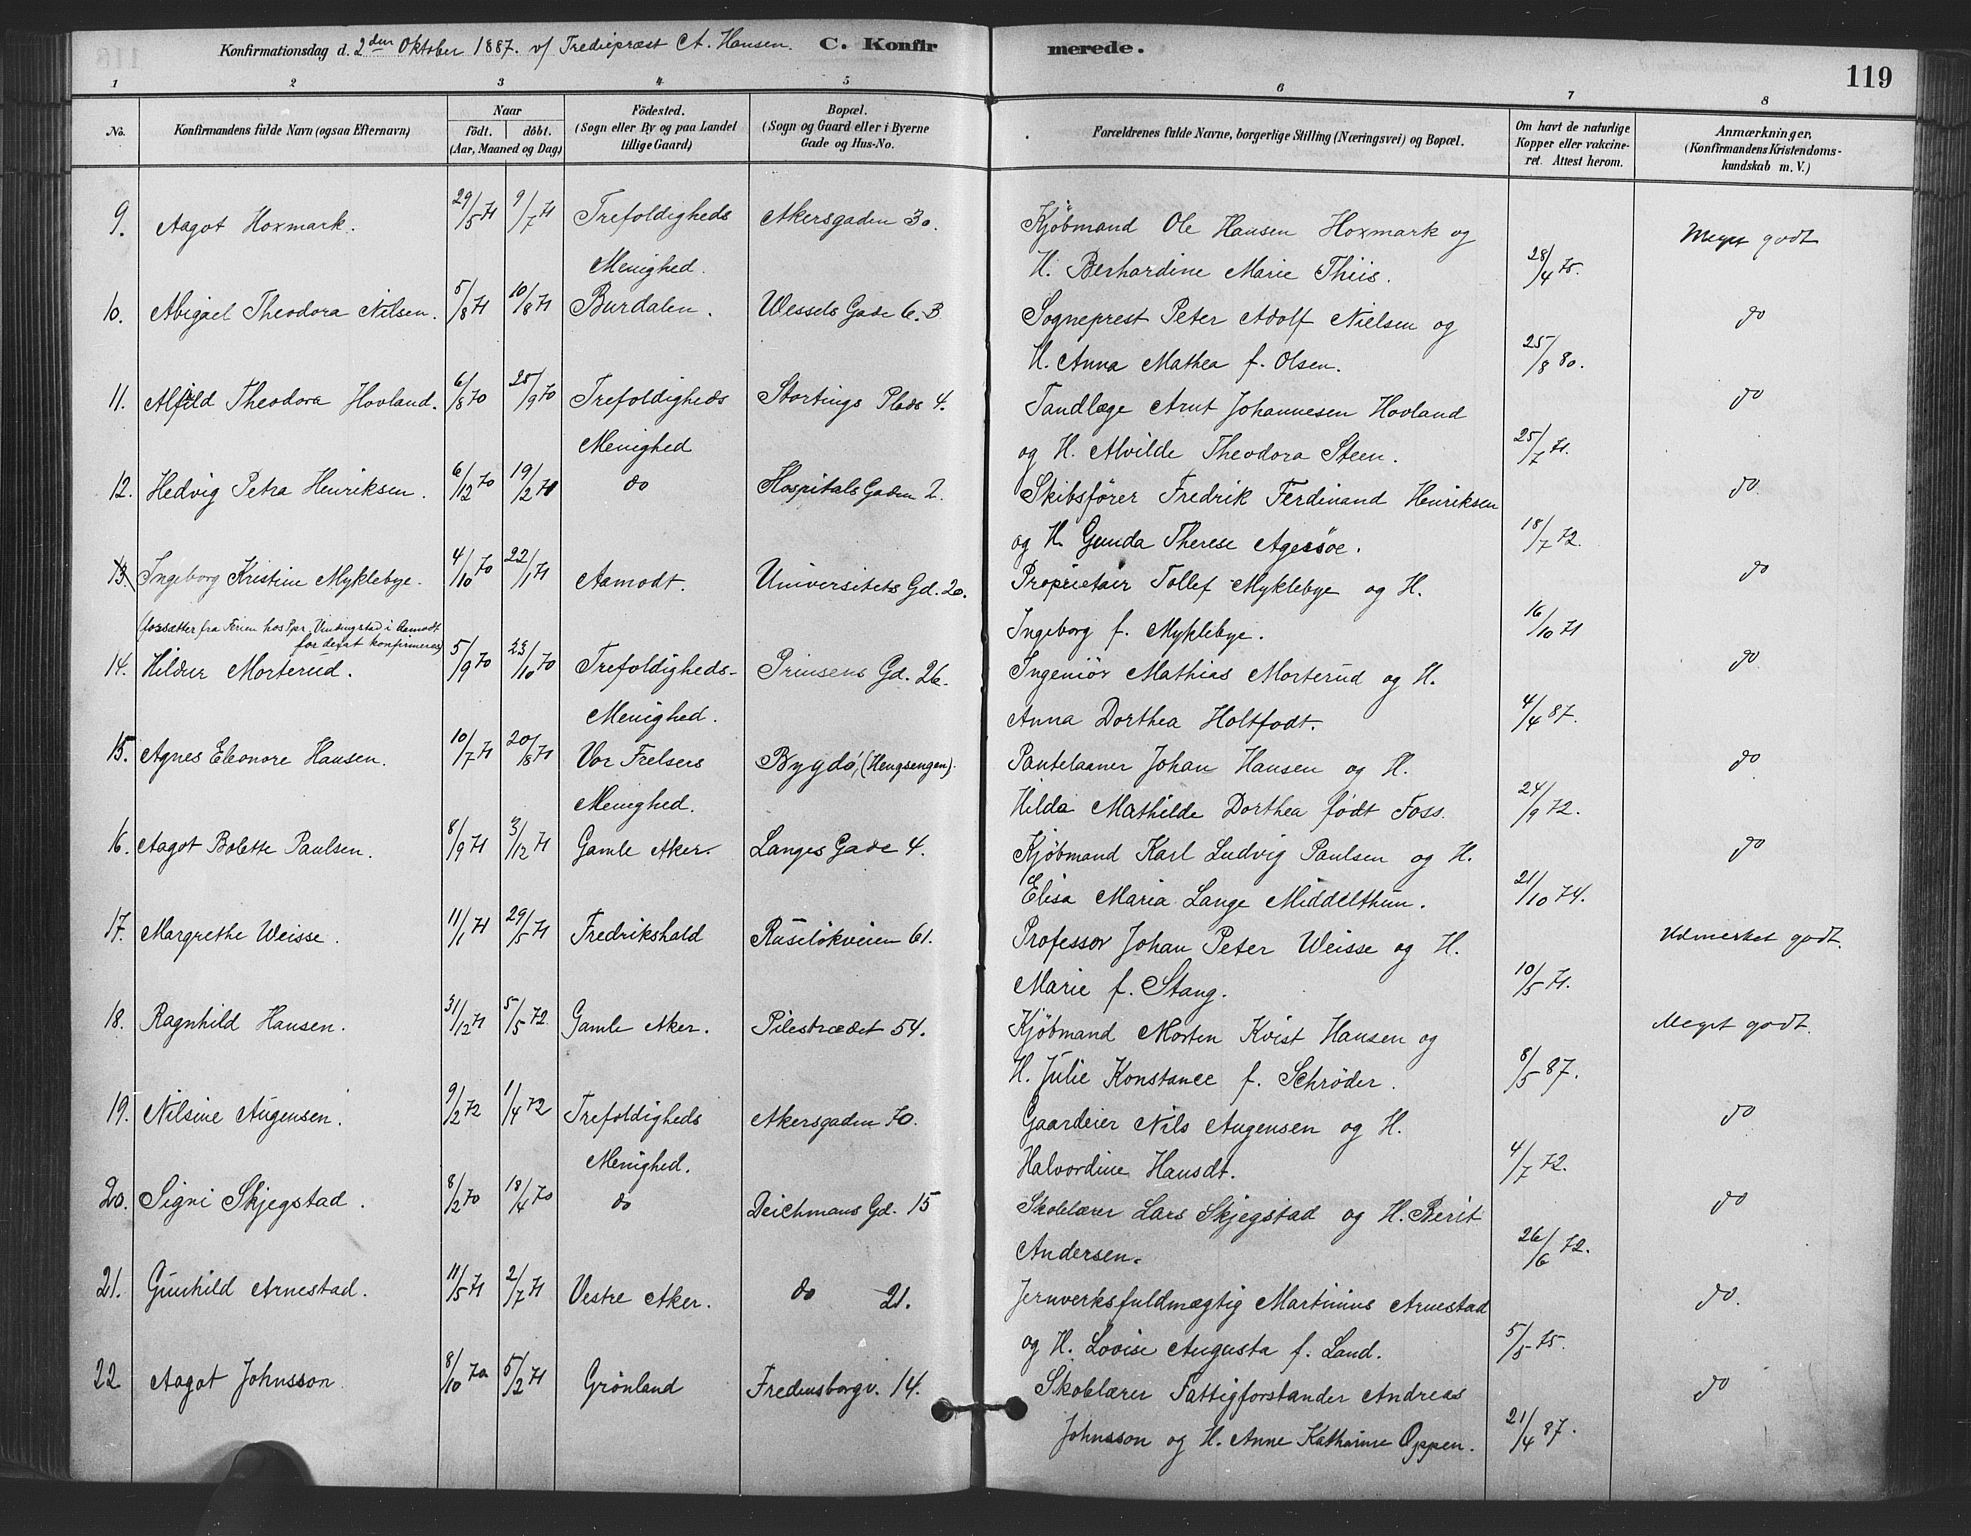 Konfirmationsdag d. 2den Oktober 1887. v/ Tredieprest A. Hansen. C. Konfirmerede. 119
1 2 3 4 5 6 7 8
No. Konfirmandens fulde Navn (ogsaa Efternavn) Naar födt. döbt. (Aar, Maaned og Dag) Födested. (Sogn eller By og paa Landet tillige Gaard) Bopæl. (Sogn og Gaard eller i Byerne Gade og Hus-No. Forældrenes fulde Navne, borgerlige Stilling (Næringsvei) og Bopæl. Om havt de naturlige Kopper eller vakcineret. Attest herom. Anmærkninger, (Konfirmandens Kristendomskundskab m. V.)
9. Aagot Hoxmark. 29/5 71 9/7 71 Trefoldigheds Akersgaden 30. Kjöbmand Ole Hansen Hoxmark og Meget godt
Menighed. H. Berhardine Marie Thiis. 28/4 75.
10. Abigael Theodora Nilsen. 5/8 71 10/8 71 Burdalen. Wessels Gade 6. B Sogneprest Peter Adolf Nielsen og do
H. Anna Mathea f. Olsen. 25/8 80.
11. Alfild Theodora Hovland. 6/8 70 25/9 70 Trefoldigheds Stortings Plads 4. Tandlæge Arnt Johannesen Hovland do
Menighed og H. Alvilde Theodora Steen. 25/7 71.
12. Hedvig Petra Henriksen. 6/12 70 19/2 71 do Hospitals Gaden 2. Skibsförer Fredrik Ferdinand Henriksen do
og H. Gunda Therese Agersöe. 18/7 72.
13. Ingeborg Kristine Myklebye. 4/10 70 22/1 71 Aamodt. Universitets Gd. 20. Proprietær Tollef Myklebye og H. do
(forsætter fra Ferien hos Spr. Vindingstad i Aamodt Ingeborg f. Myklebye. 16/10 71
for derat konfirmeres)
14. Hildur Morterud. 5/9 70 23/10 70 Trefoldigheds- Prinsens Gd. 26. Ingeniör Mathias Morterud og H. do
Menighed. Anna Dorthea Holtfodt. 4/4 87.
15. Agnes Eleonore Hansen. 10/7 71 20/8 71 Vor Frelsers Bygdö, (Hengsengen). Pantelaaner Johan Hansen og H. do
Menighed. Hilda Mathilde Dorthea födt Foss. 24/9 72.
16. Aagot Bolette Paulsen. 8/9 71 3/12 71 Gamle Aker. Langes Gade 4. Kjöbmand Karl Ludvig Paulsen og H. do
Elisa Maria Lange Middelthun. 21/10 74.
17. Margrethe Weisse. 11/1 71 29/5 71 Fredrikshald Ruselökveien 61. Professor Johan Peter Weisse og H. Udmerket godt.
Marie f. Stang. 10/5 71.
18. Ragnhild Hansen. 31/12 71 5/5 72. Gamle Aker. Pilestrædet 54. Kjöbmand Morten Kvist Hansen og Meget godt.
H. Julie Konstance f. Schröder. 8/5 87.
19. Nilsine Augensen. 9/2 72 1/4 72 Trefoldigheds Akersgaden 70. Gaardeier Nils Augensen og H. do
Menighed. Halvordine Hansdt. 4/7 72.
20. Signi Skjegstad. 8/2 70 18/4 70 do Deichmans Gd. 15 Skolelærer Lars Skjegstad og H. Berit do
Andersen. 26/6 72.
21. Gunhild Arnestad. 11/5 71 2/7 71 Vestre Aker. do 21. Jernverksfuldmægtig Martinius Arnestad do.
og H. Lovise Augusta f. Land. 5/5 75.
22 Aagot Johnsson 8/10 70 5/2 71 Grönland Fredensborgv. 14. Skolelærer Fattigforstander Andreas do
Johnsson og H. Anne Katharine Oppen. 21/4 87.